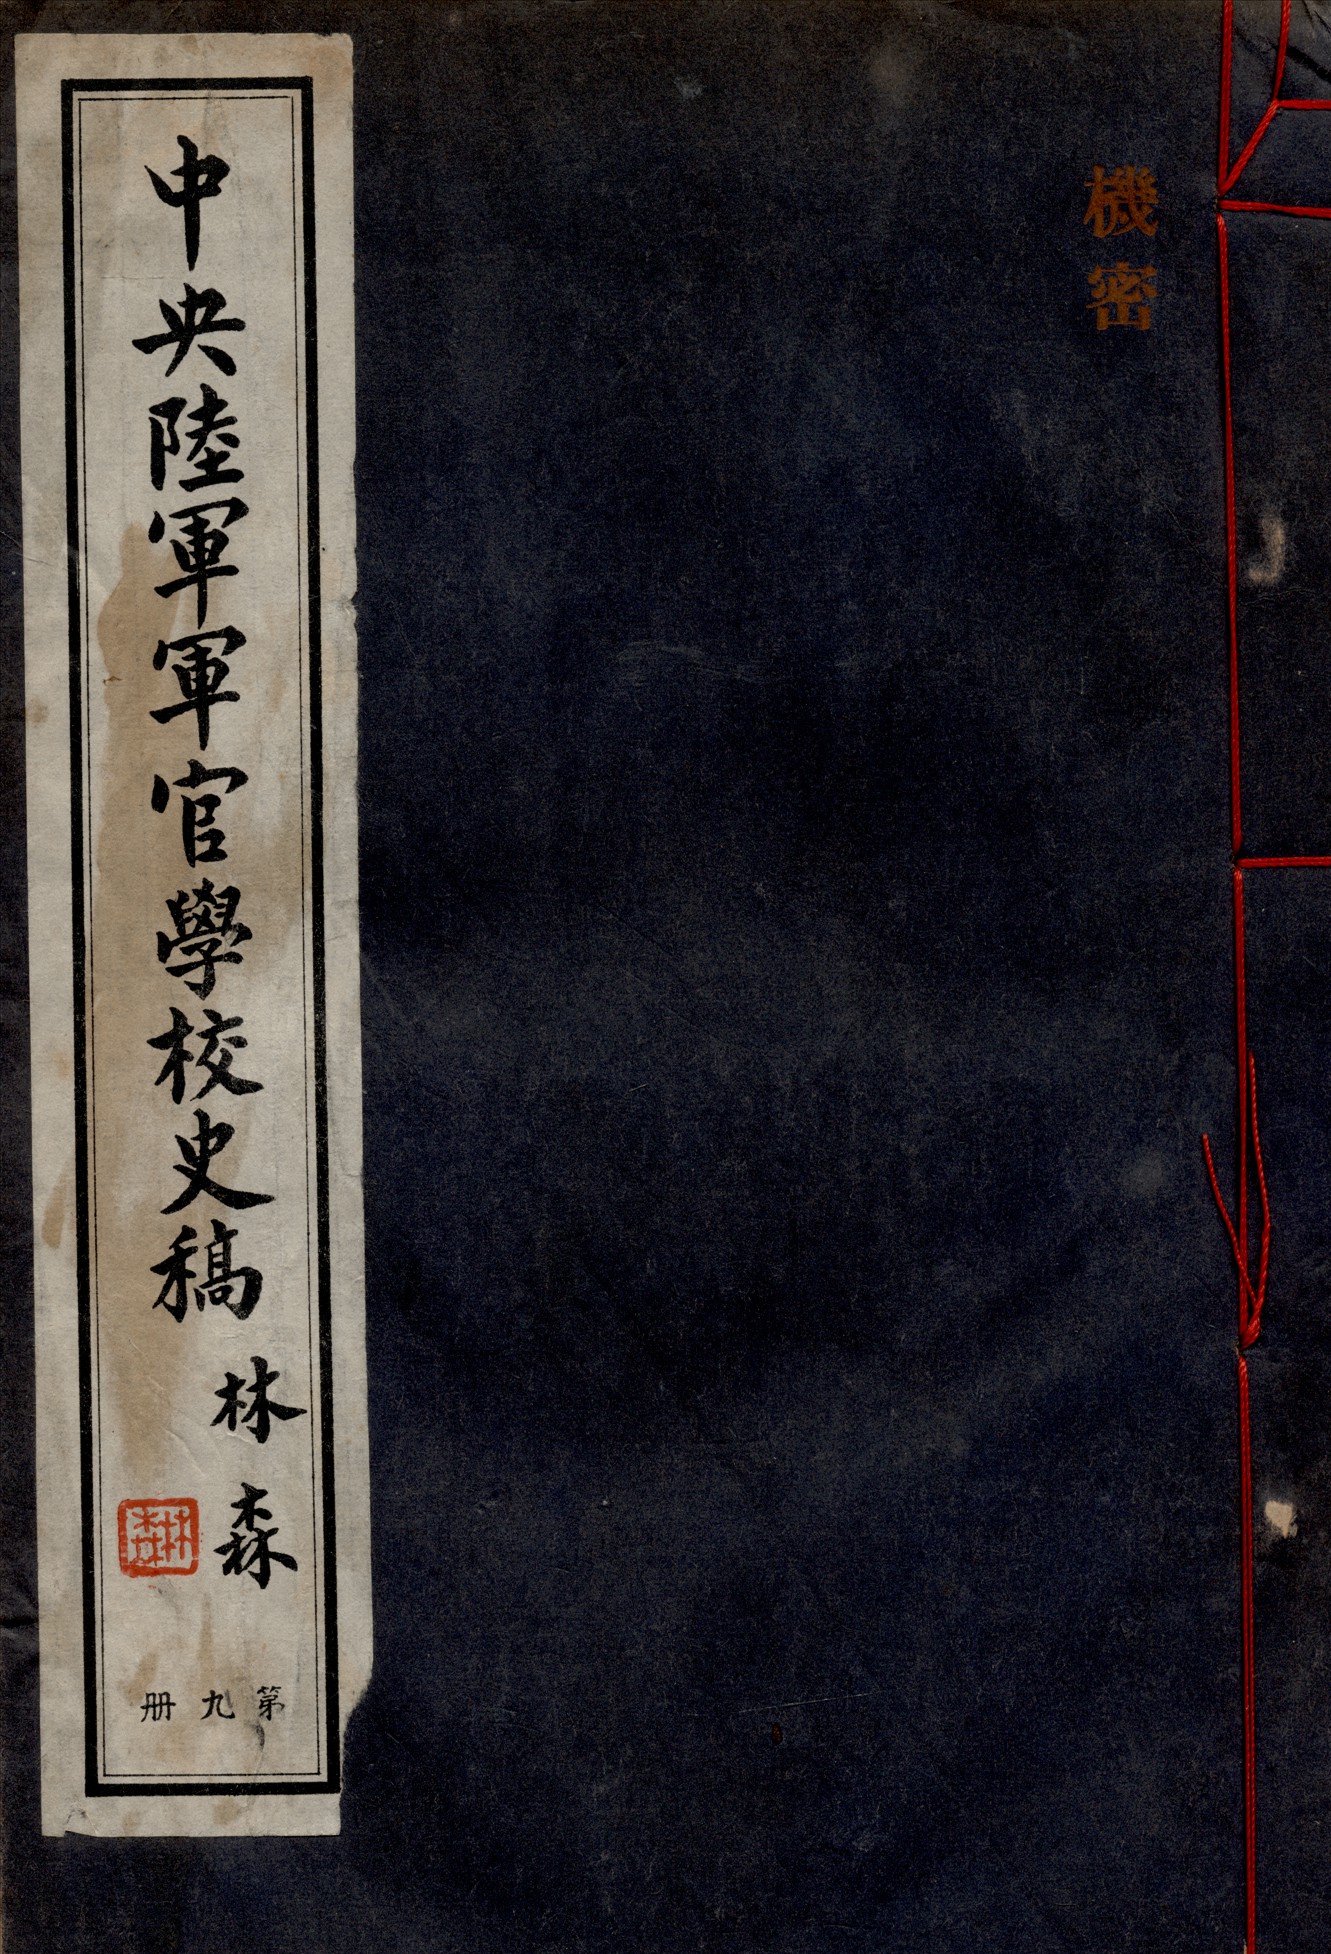 機密
中央陸軍軍官學校史稿
林森
林森
第九冊